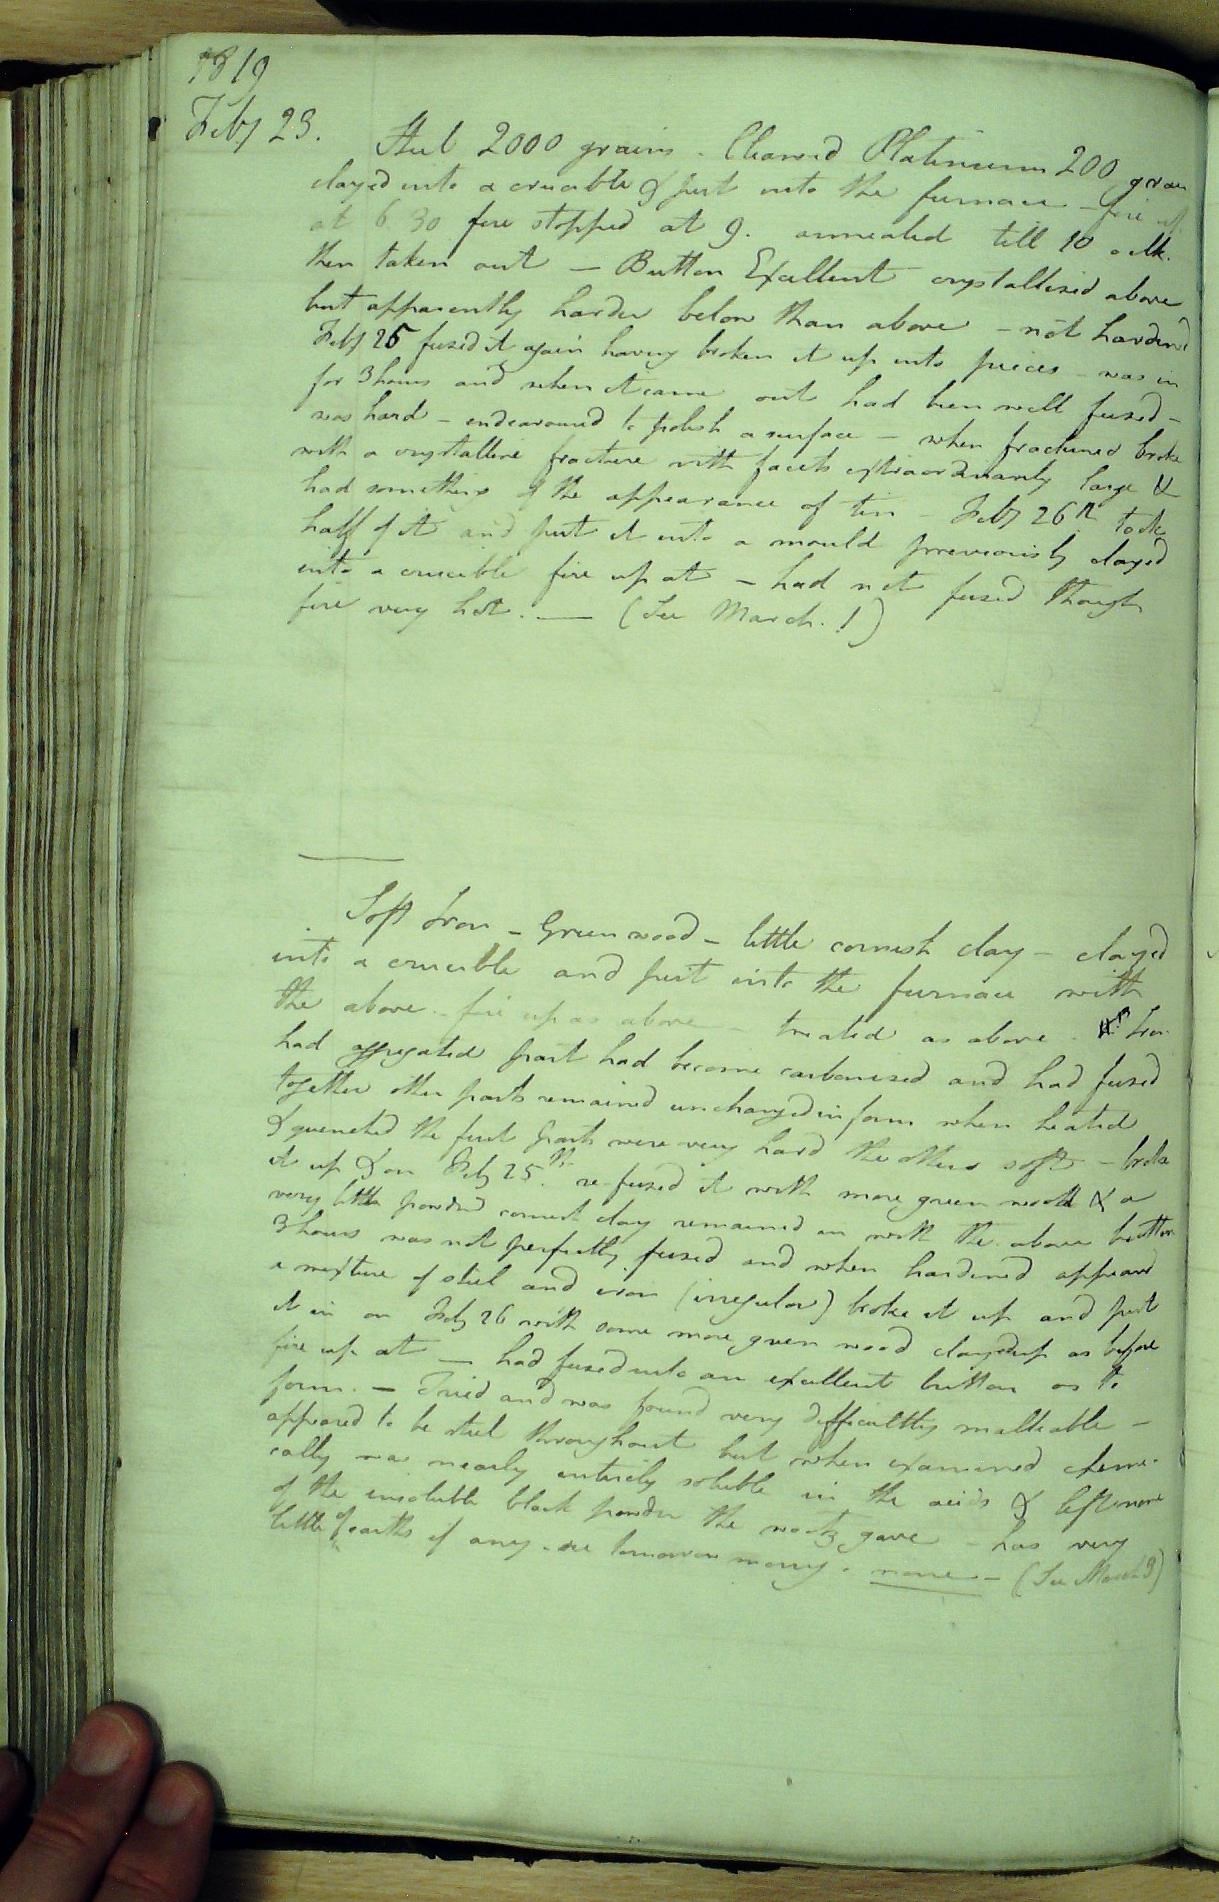 1819
Feby 23.
Steel 2000 grains - Cleaned Platinum 200 grains
clayed into a crucible & put into the furnace - fire up
at 6.30 fire stopped at 9. annealed till 10 oclk.
then taken out - Button Excellent crystallised above
but apparently harder below than above - not harden'd
Feby 25 fused it again having broken it up into pieces - was in
for 3 hours and when it came out had been well fused -
was hard - endeavoured to polish a surface - when fractured broke
with a crystalline fracture with facets extraordinarily large &
had something of the appearance of tin - Feby 26th took
half of it and put it into a mould previously clayed
into a crucible fire up at - had not fused though
fire very hot. — (See March. 1)
Soft Iron - Green wood - little cornish clay - clayed
into a crucible and put into the furnace with
the above - fire up as above - treated as above. Iron
had aggregated part had become carbonised and had fused
together other parts remained unchanged in form when heated
& quenched the first parts were very hard the others soft - broke
it up & on Feby 25th. re-fused it with more green wood & a
very little powdd cornish clay remained in with the above button
3 hours was not perfectly fused and when hardened appeard
a mixture of steel and iron (irregular) broke it up and put
it in on Feby 26 with some more green wood clayed up as before
fire up at — had fused into an excellent button as to
form. - Tried and was found very difficultly malleable -
appeared to be steel throughout but when examined chemi-
cally was nearly entirely soluble in the acids & left none
of the insoluble black powder the wootz gave - has very
little of earths if any - see tomorrow morng. none - (See March 3)